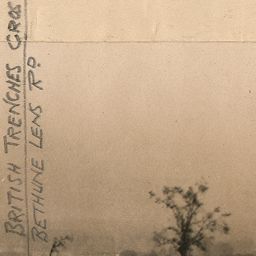 BRITISH TRENCHES CROS
BETHUNE LENS RD